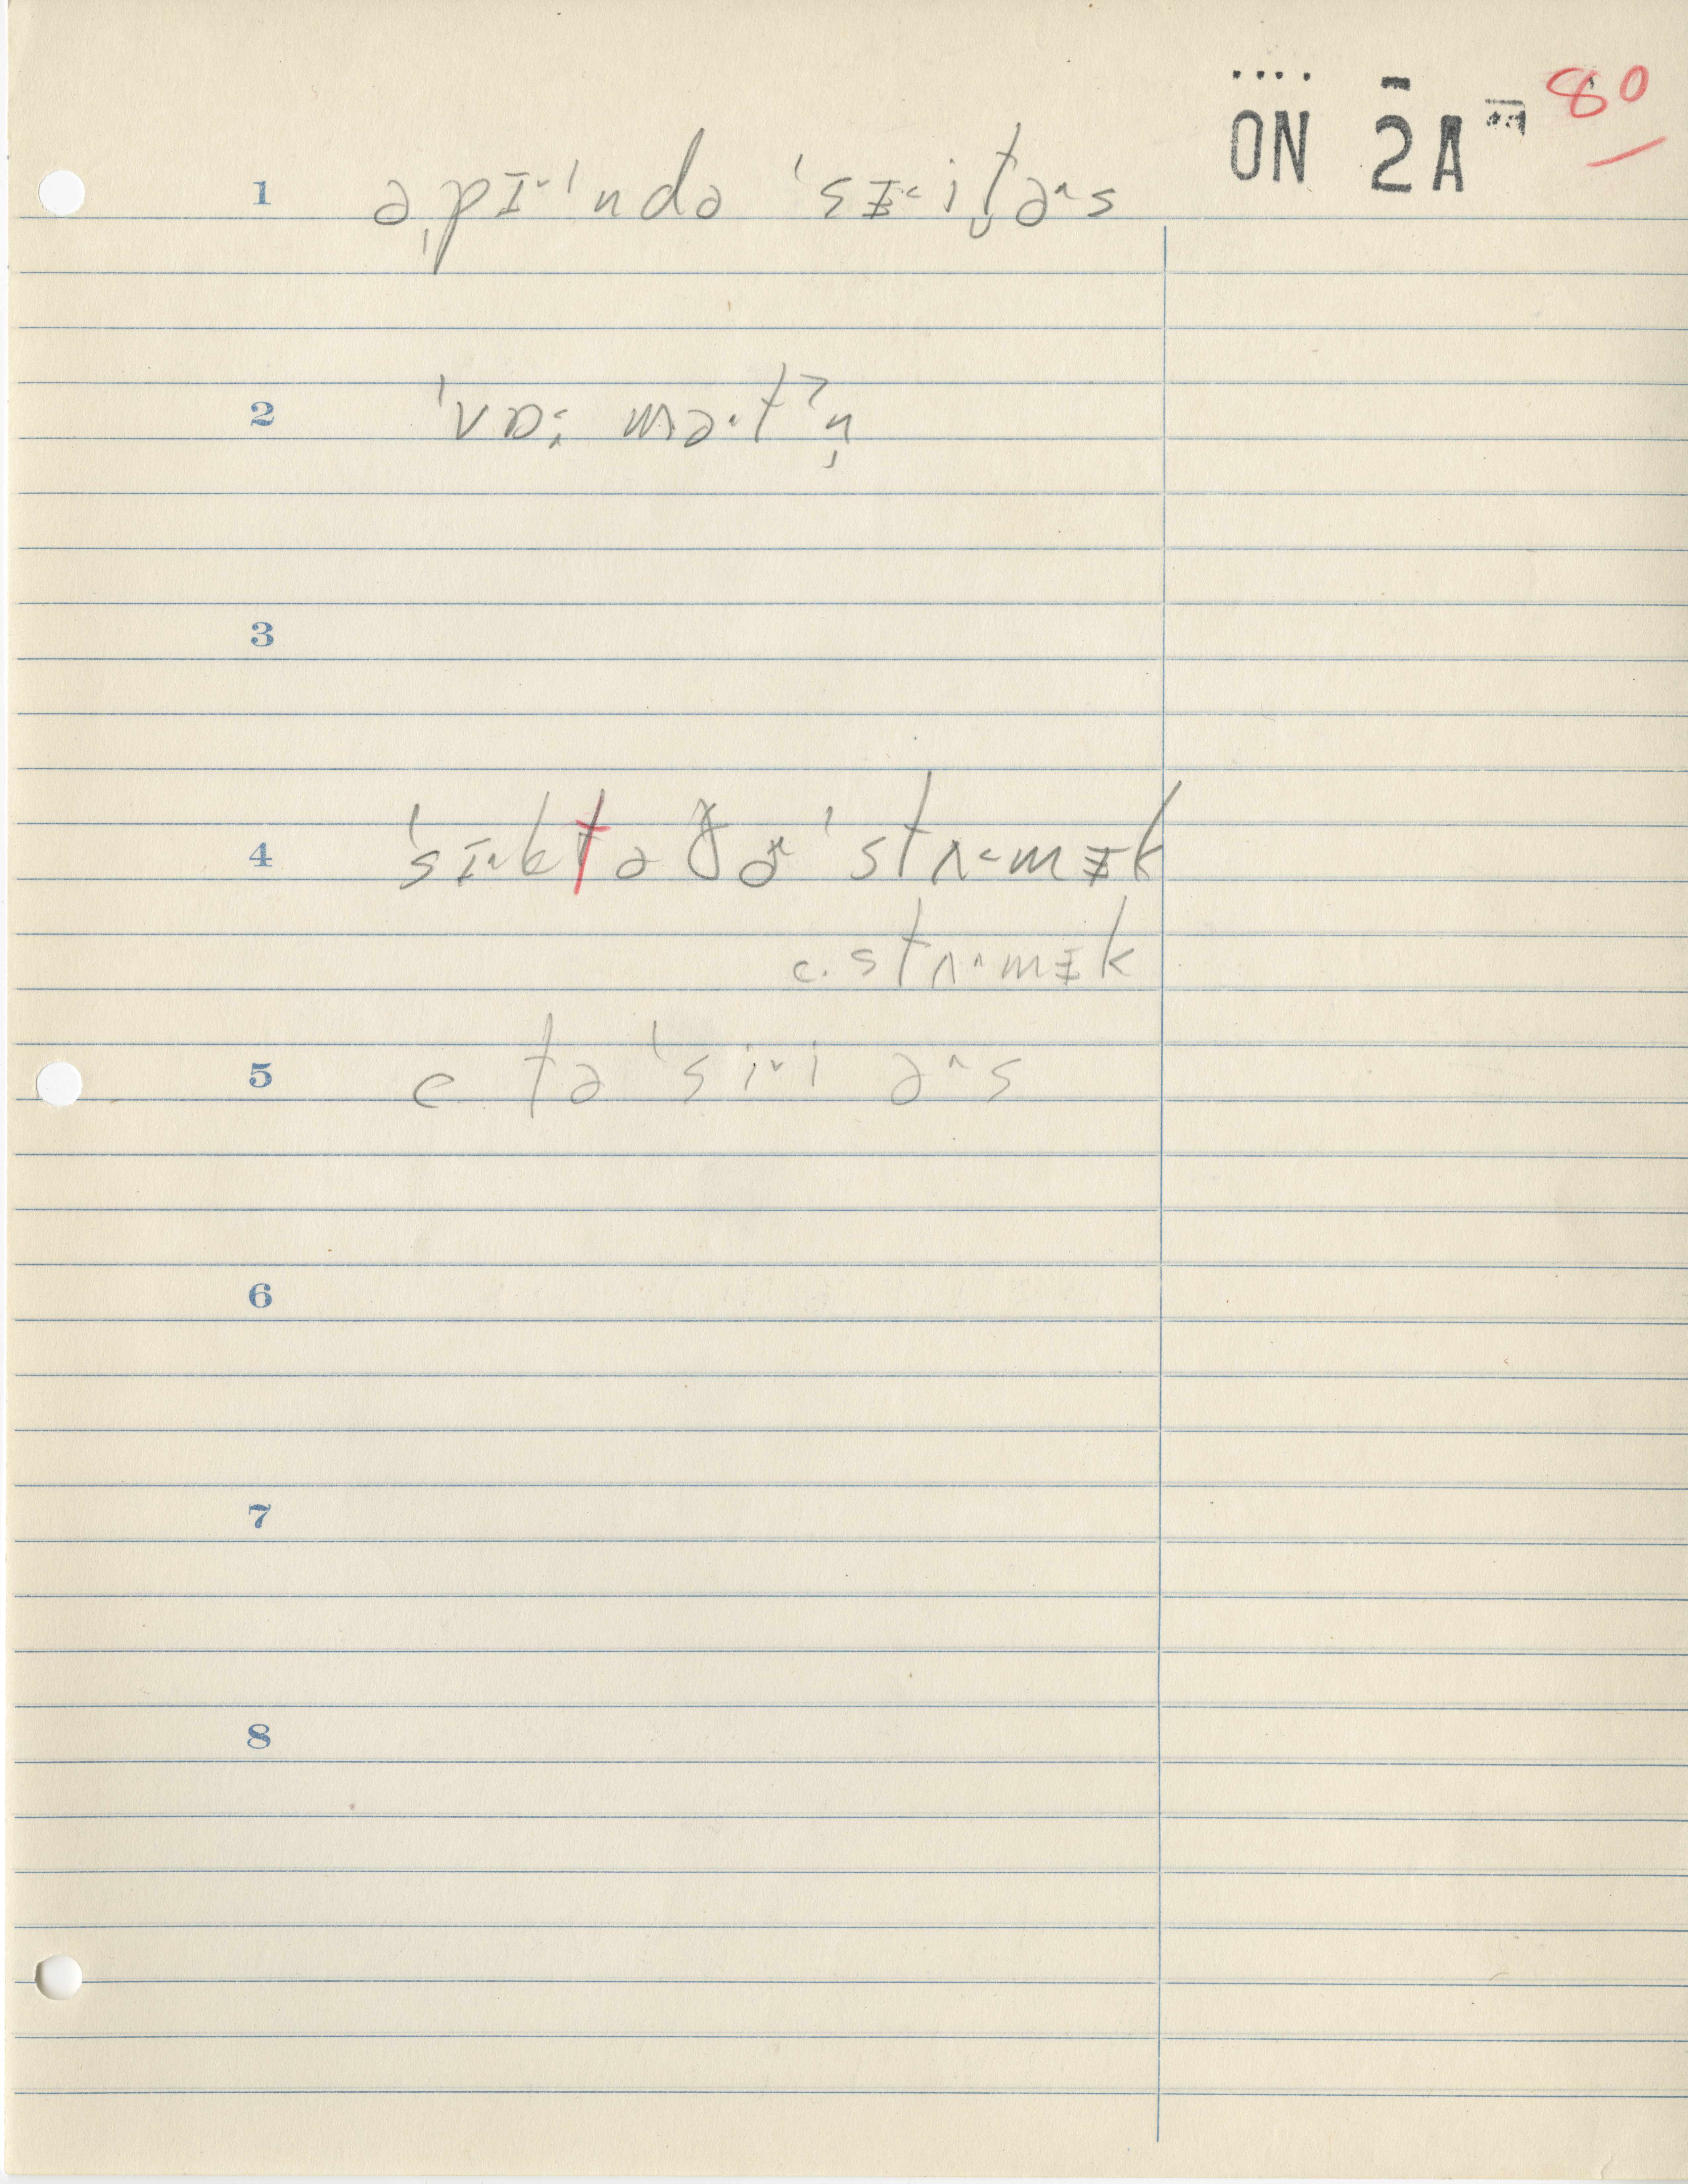 ON 2A 80
1 əˌpɪ˅ˈndə ˈsᵻ˂it̬ə˄s
2 ˈvɒ: mə˂tˀn̩
3
4 ˈsɪ˅ktə ðə˄ ˈstʌ˂mᵻk
c. stʌ˄mᵻk
5 c tə ˈsi˅i ə˄s
6
7
8